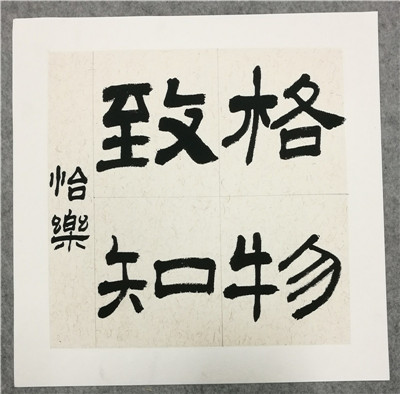 格物
致知
怡樂